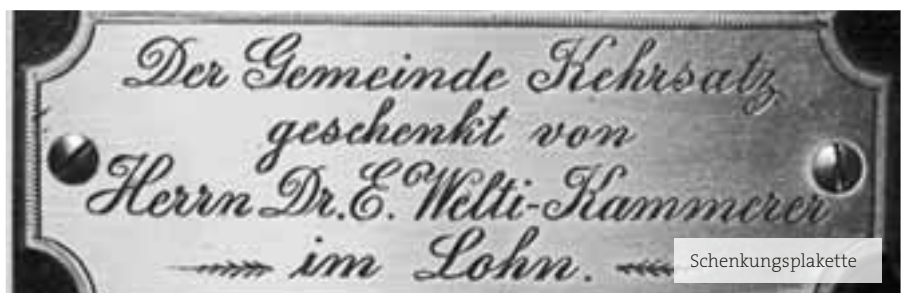 Der Gemeinde Kehrsatz
geschenkt von
Herrn Dr. E. Welti-Kammerer
im Lohn.
Schenkungsplakette